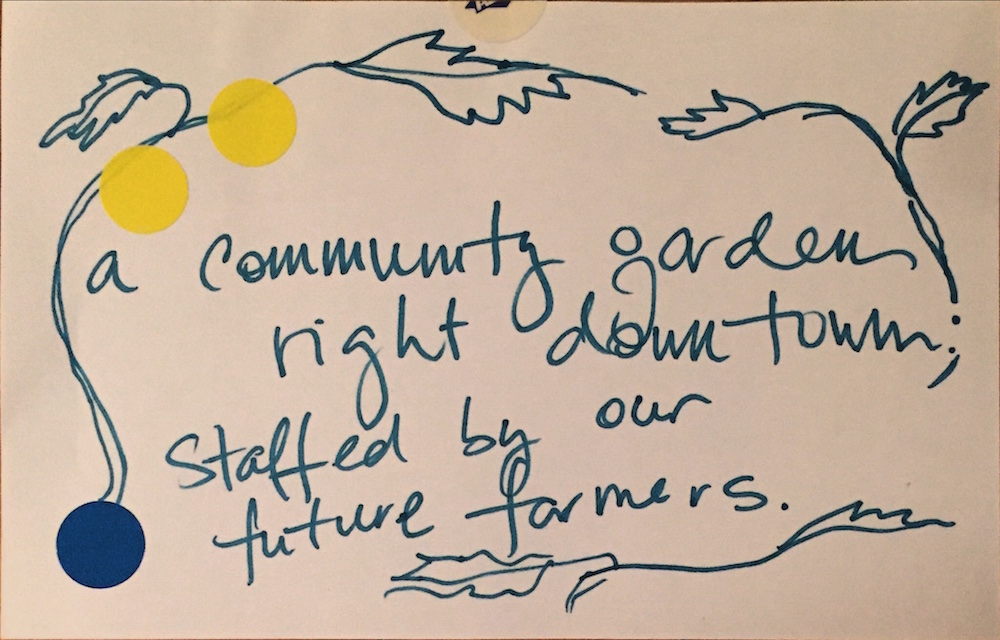 a community garden
right downtown;
staffed by our
future farmers.